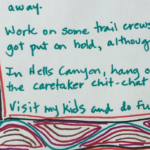 away.
Work on some trail crews
got put on hold, although
In Hells Canyon, hang o
the caretaker chit-chat
Visit my kids and do fu